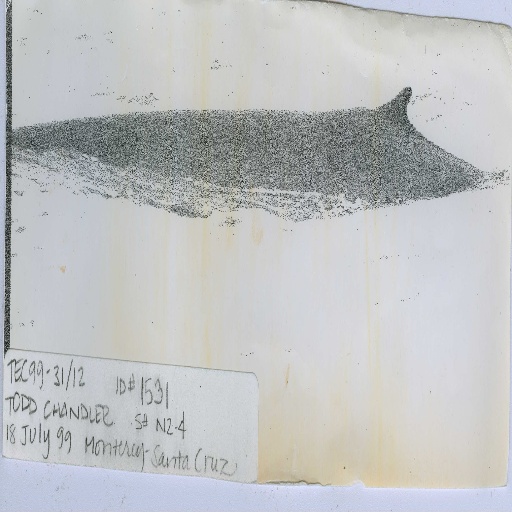 TEC99-31/12 ID# 1531
TODD CHANDLER S# N2-4
18 July 99 Monterey-Santa Cruz